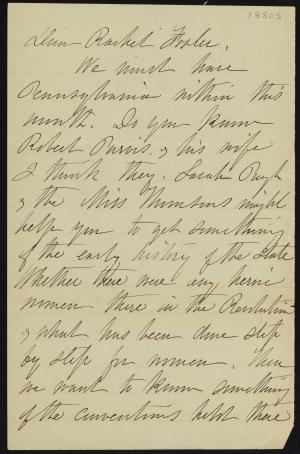 1880s
Dear Rachel Foster,
We must have
Pennsylvania within this
month. Do you know
Robert Purvis, & his wife
I think they, Sarah Pugh
& the Miss Thomsons might
help you to get something
of the early history of the state
Whether there were any heroic
women there in the Revolution
& what has been done step
by step for women. Then
we want to know something
of the conventions held there